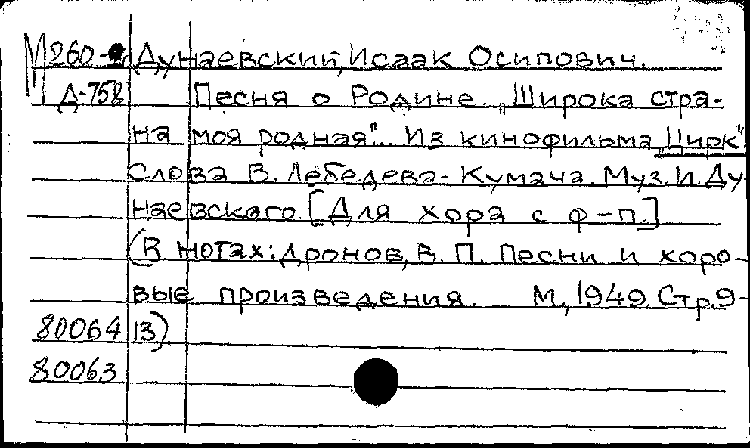 М260- Дунаевский, Исаак Осипович.
Д-758 Песня о Родине „Широка стра-
на моя родная".. Из кинофильма „Цирк"
Слова В. Лебедева-Кумача. Муз. И. Ду
наевского. [Для хора с ф-п.]
(В нотах: Дронов, В. П. Песни и хоро-
вые произведения. М., 1949. Стр. 9-
80064 13)
80063